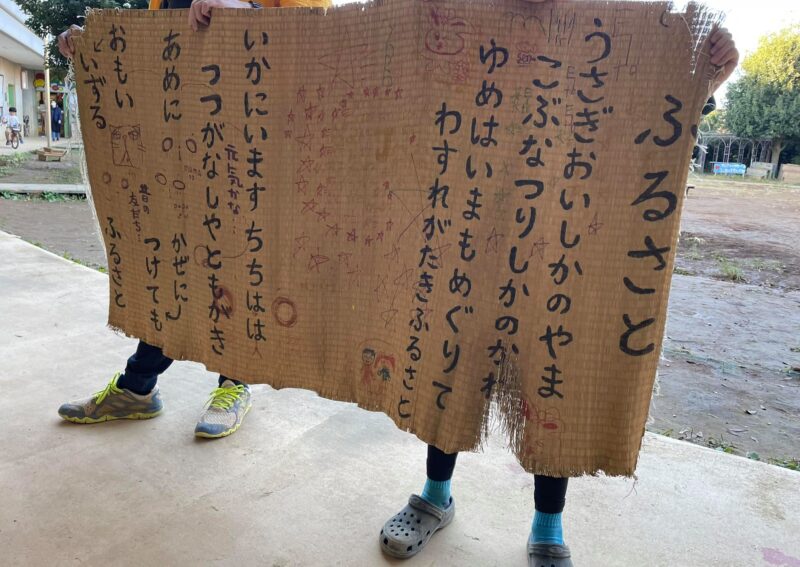 ふるさと
うさぎおいしかのやま
こぶなつりしかのかわ
ゆめはいまもめぐりて
わすれがたきふるさと
いかにいますちちはは
元気かな…
つつがなしやともがき
あめに かぜに
つけても
昔の
友だち…
おもい
いずる
ふるさと